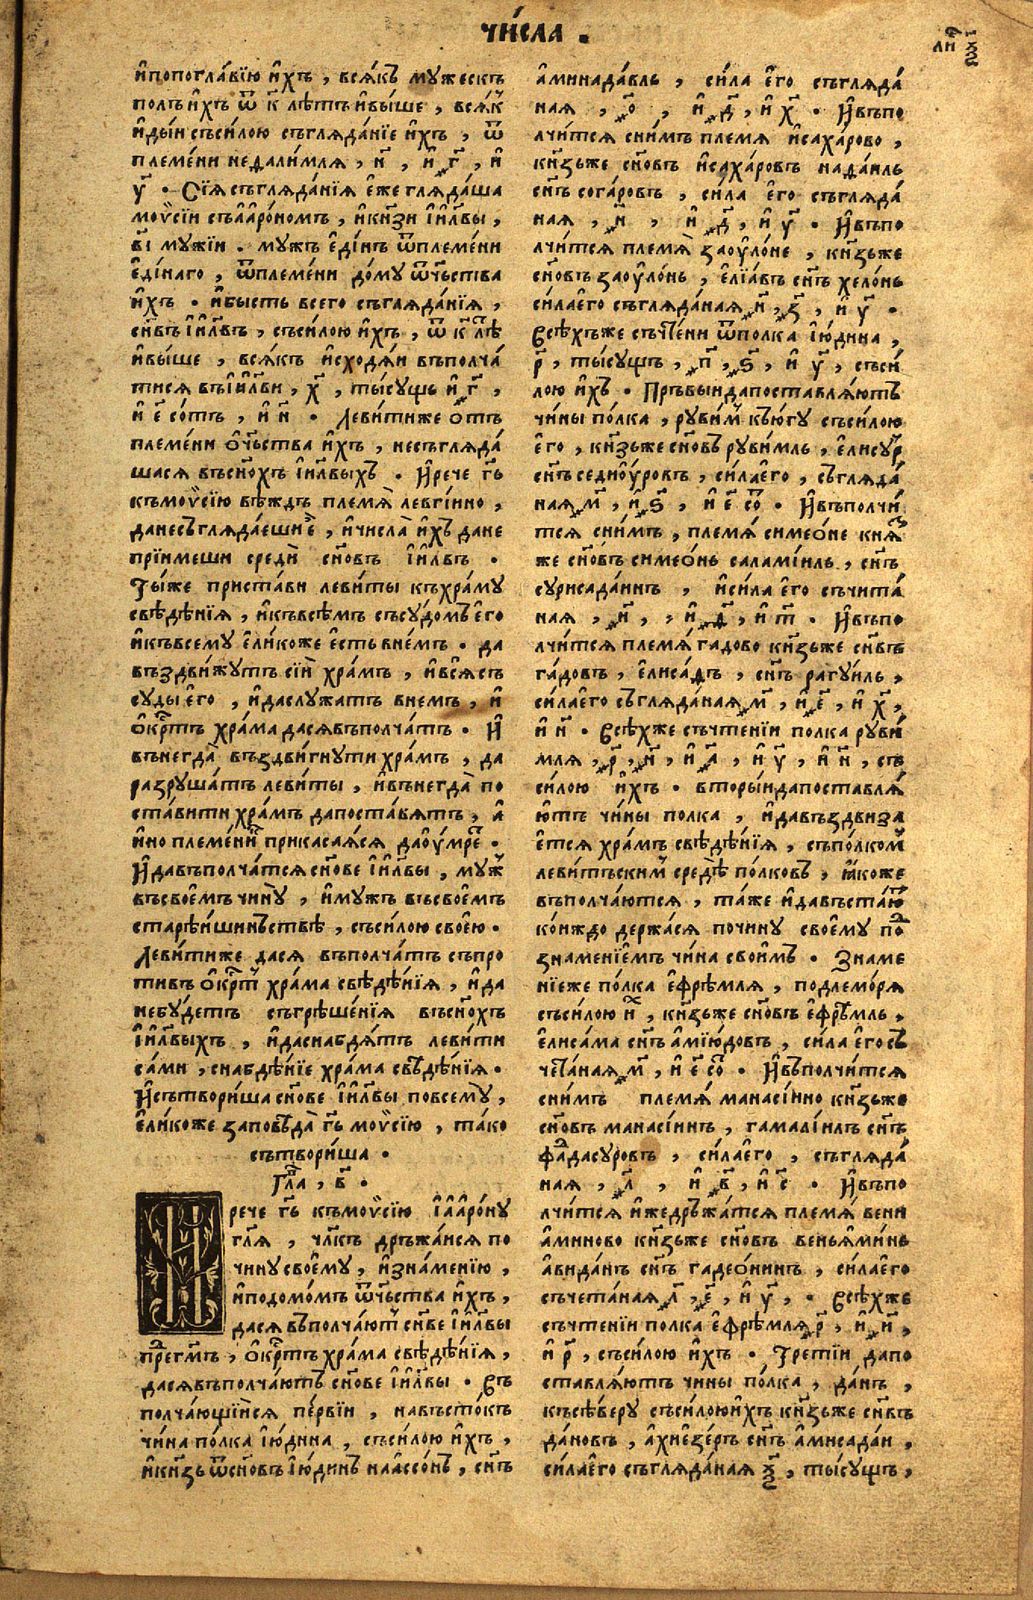 чи́сла .
и҆попогла́вїю и҆́хъ , всѧ́къ му́жескъ
по́лъ и҆́хъ ѿ к҃ лѣ́тъ и҆вы́ше , всѧ́к
и҆ды́и съси́лою съглѧда́нїе и҆́хъ , ѿ
пле́мени недали́млѧ , н҃ , и҆ г҃ , и҆
у҃ . Сїѧ́ съглѧда́нїѧ е҆́же глѧда́ша
мѡѷсі́и съа҆арѡ́номъ , и҆кнѧ́зи і҆и҃лвы ,
в҃і му́жїи . му́жъ е҆ди́нъ ѿпле́мени
е҆ди́наго , ѿпле́мени до́му ѿч҃ьства
и҆́хъ . и҆бы́сть всего̀ съглѧда́нїѧ ,
сн҃въ і҆и҃лвъ , съси́лою и҆́хъ , ѿ к҃ лѣ
и҆вы́ше , всѧ́къ и҆сходѧ́и въполча́
тисѧ въі҆и҃лви , х҃ , ты́сущь и҆ г҃ ,
и҆ е҃ со́тъ , и҆ н҃ . Леви́тиже ѻтъ
пле́мени ѻ҆ч҃ьства и҆́хъ , несъглѧда́
шасѧ въсн҃охъ і҆и҃лвыхъ . И҆рече гь҃
къмѡѷсі́ю вѣ́ждь пле́мѧ леѵгі́ино ,
данесъглѧда́еши е҆̀ , и҆числа̀ и҆́хъ дане
прїи́меши средѝ сн҃овъ і҆и҃лвъ .
Ты́же приста́ви леви́ты къхра́му
свѣдѣ́нїѧ , и҆къвсѣ́мъ съсу́домъ е҆го
и҆къвсему̀ е҆ли́коже е҆́сть вне́мъ . да
въздви́жутъ сїи̏ хра́мъ , и҆всѧ̀ съ
су́ды е҆го̀ , и҆даслу́жатъ вне́мъ , и҆
ѻ҆́крⷭ҇тъ хра́ма дасѧвъполча́тъ . И҆
вънегда̀ въздви́гнути хра́мъ , да
разруша́тъ леви́ты , и҆вънегда̀ по
ста́вити хра́мъ дапоста́вѧтъ , а҆
и҆но пле́мени прикаса́ѧсѧ дао҆у́мре .
И҆давъполча́тсѧ сн҃ове і҆и҃лвы , му́ж
въсвое́мъ чи́ну , и҆му́жъ въсвое́мъ
старѣ́ишиньствѣ , съси́лою свое́ю .
Леви́тиже дасѧ въполча́тъ съпро
ти́въ ѻ҆́крⷭ҇тъ хра́ма свѣдѣ́нїѧ , и҆да
небу́детъ съгрѣше́нїѧ въсн҃охъ
і҆и҃лвыхъ , и҆даснабдѧ́тъ леви́ти
са́ми , снабдѣ́нїе хра́ма свѣдѣ́нїѧ .
И҆сътвори́ша сн҃ове і҆и҃лвы повсему̀ ,
е҆ли́коже заповѣ́да гь҃ мѡѷсі́ю , та́ко
сътвори́ша .
Гла̀ , в҃ .
И҆рече гь҃ къмѡѷсі́ю і҆а҆арѡ́ну
гл҃ѧ , чл҃къ дръжа́исѧ по
чи́ну свое́му , и҆зна́менїю ,
и҆подомо́мъ ѿч҃ьства и҆́хъ ,
дасѧ въполча́ют сн҃ве і҆и҃лвы
прⷣегмъ , ѻ҆́крⷭ҇тъ хра́ма свѣдѣ́нїѧ ,
дасѧвъполча́ютъ сн҃ове і҆и҃лвы . Въ
полча́ющіисѧ пе́рвїи , навъсто́къ
чи́на по́лка і҆ю́дина , съси́лою и҆́хъ ,
и҆кнѧ́зь ѿсн҃овъ і҆ю́динъ наассо́нъ , сн҃ъ
а҆минада́вль , си́ла е҆го̀ съглѧда́
наѧ , о҃ , и҆ д҃ , и҆ х҃ . И҆въпо
лчи́тсѧ сни́мъ пле́мѧ и҆саха́рово ,
кнѧ́зьже сн҃овъ и҆саха́ровъ нада́иль
сн҃ъ сога́ровъ , си́ла е҆го̀ съглѧда́
наѧ , н҃ , и҆ д҃ , и҆ у҃ . И҆въпо
лчи́тсѧ пле́мѧ̀ заѹло́не , кнѧ́зьже
сн҃овъ заѹло́нь , е҆лїа́въ сн҃ъ хело́нь
си́лае҆го̀ съглѧда́наѧ н҃ , з҃ , и҆ у҃ .
Всѣ́хъже съчте́ни ѿполка і҆ю́дина ,
р҃ , ты́сущъ , п҃ , ѕ҃ , и҆ у҃ , съси́
лою и҆́хъ . Пръвы́идапоставлѧ́ютъ
чи́ны по́лка , руви́м къю́гу съси́лою
е҆го , кнѧ́зьже сн҃овъ руви́мль , е҆лису́р
сн҃ъ седио҆у́ровъ , си́лае҆го , съглѧда́
наѧ м҃ , и҆ ѕ҃ , и҆ е҃ со . И҆въполчи́
тсѧ сни́мъ , пле́мѧ симео́не кнѧз
же сн҃овъ симео́нь саламі́иль , сн҃ъ
сурисада́инъ , и҆си́ла е҆го̀ съчита́
наѧ , н҃ , и҆ д҃ , и҆ т҃ . И҆въпо
лчи́тсѧ пле́мѧ га́дово кнѧ́зьже сн҃въ
га́довъ , е҆лиса́дъ , сн҃ъ рагу́иль ,
си́лае҆го съглѧда́наѧ м҃ , и҆ е҃ , и҆ х҃ ,
и҆ н҃ . Всѣ́хже съчте́нїи полка руви́
млѧ , р҃ , н҃ , и҆ а҃ , и҆ у҃ , и҆ н҃ , съ
си́лою и҆́хъ . вторы́идапоставлѧ́
ютъ чи́ны полка , и҆давъздви́за
е҆тсѧ хра́мъ свѣдѣ́нїѧ , съпо́лком
леви́тьским средѣ̀ по́лковъ , ꙗ҆́коже
въполча́ютсѧ , та́же и҆давъста́ют
ко́иждо держа́сѧ почи́ну свое́му поⷣ
зна́менїемъ чи́на свои́мъ . Зна́ме
нїеже по́лка е҆фре́млѧ , подлемо́рѧ
съси́лою и҆х , кнѧ́зьже сн҃овъ е҆фрѣ́мль ,
е҆лиса́ма сн҃ъ а҆мїю́довъ , си́ла е҆го съ
чета́наѧ м҃ , и҆ е҃ со . И҆въполчи́тсѧ
сни́мъ пле́мѧ манасі́ино кнѧ́зьже
сн҃овъ манасі́инъ , гамалі́илъ сн҃ъ
фада́суровъ , си́лае҆го , съглѧда́
наѧ , л҃ , и҆ в҃ , и҆ с҃ . И҆въпо
лчи́тсѧ и҆́жедръжа́тсѧ пле́мѧ вени
а҆ми́ново кнѧ́зьже сн҃овъ веньѧми́нь
а҆вида́нъ сн҃ъ гадео́нинъ , си́лае҆го
съчета́наѧ л҃ , е҃ , и҆ у҃ , . Всѣ́хже
съчте́нїи полка е҆фрѣ́млѧ р҃ , и҆ и҃ ,
и҆ р҃ , съси́лою и҆́хъ . Тре́тїи дапо
ставлѧ́ютъ чи́ны по́лка , да́нъ ,
късѣ́веру съси́лоюи҆́хъ кнѧ́зьже сн҃въ
да́новъ , а҆хїезе́ръ сн҃ъ а҆мисада́и ,
си́лае҆го съглѧда́наѧ ѯ҃ , ты́сущъ ,